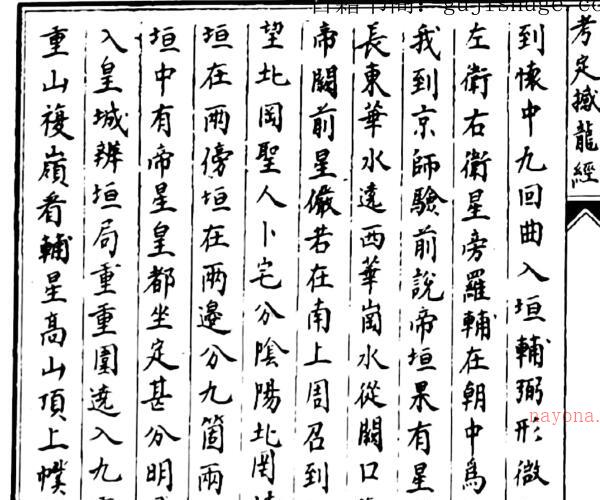 考定撼龍經
到懷中九回曲入垣輔弼形微
左衛右衛星旁羅輔在朝中為
我到京師驗前說帝垣果有星
長東華水遶西華崗水從闕口
帝闕前星儼若在南上周召到
望北岡聖人卜宅分陰陽北岡
垣在兩傍垣在兩邊分九箇兩
垣中有帝星皇都坐定甚分明
入皇城辨垣局重重圍遶入九
重山複嶺看輔星高山頂上幞
nayona.